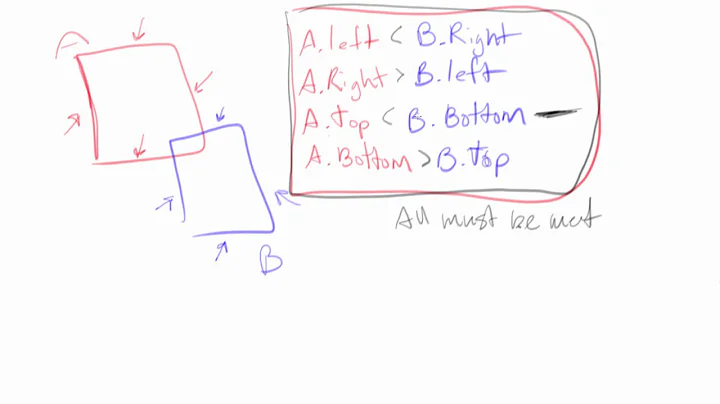 A
A.left < B.Right
A.Right > B.left
A.top < B.Bottom
A.Bottom > B.top
All must be met
B